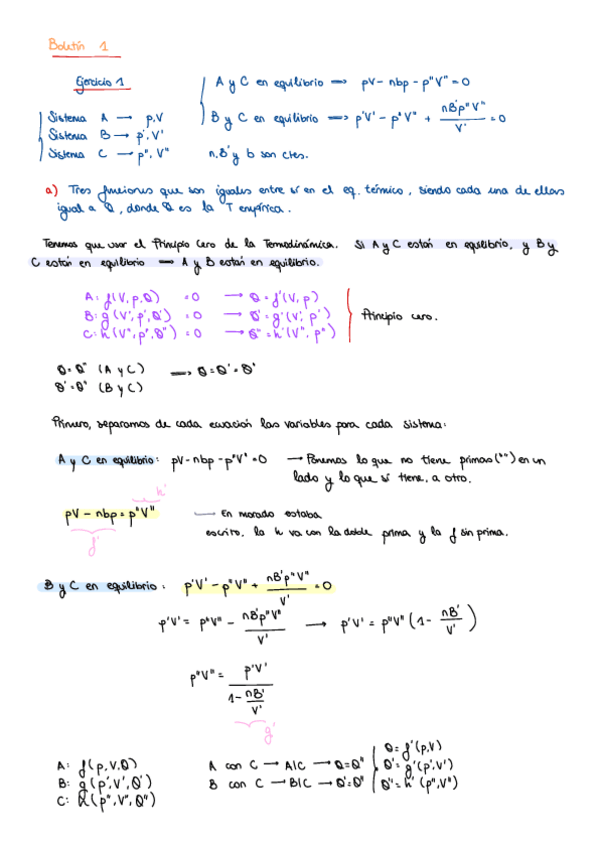 Boletín 1
Ejercicio 1
A y C en equilibrio ⟹ pV - nbp - p"V" = 0
Sistema A → p,V
B y C en equilibrio ⟹ p'V' - p"V" + nB'p"V"/V' = 0
Sistema B → p',V'
Sistema C → p",V"
n, B' y b son ctes.
a) Tres funciones que son iguales entre sí en el eq. térmico, siendo cada una de ellas
igual a θ, donde θ es la T empírica.
Tenemos que usar el Principio Cero de la Termodinámica. Si A y C están en equilibrio, y B y
C están en equilibrio ⟹ A y B están en equilibrio.
A: f(V,p,θ) = 0 → θ = f'(V,p)
B: g(V',p',θ') = 0 → θ' = g'(V',p')
Principio cero.
C: h(V",p",θ") = 0 → θ" = h'(V",p")
θ = θ" (A y C)
⟹ θ = θ' = θ"
θ' = θ" (B y C)
Primero, separamos de cada ecuación las variables para cada sistema:
A y C en equilibrio: pV - nbp - p"V" = 0 → Ponemos lo que no tiene primas (") en un
lado y lo que sí tiene, a otro.
h'
pV - nbp = p"V"
En morado estaba
escrito, la h va con la doble prima y la f sin prima.
f'
B y C en equilibrio: p'V' - p"V" + nB'p"V"/V' = 0
p'V' = p"V" - nB'p"V"/V' → p'V' = p"V" (1 - nB'/V')
p"V" = p'V'/(1 - nB'/V')
g'
θ = f'(p,V)
A: f(p,V,θ) A con C → A|C → θ = θ" θ' = g'(p',V')
B: g(p',V',θ') B con C → B|C → θ' = θ" θ" = h'(p",V")
C: h(p",V",θ")